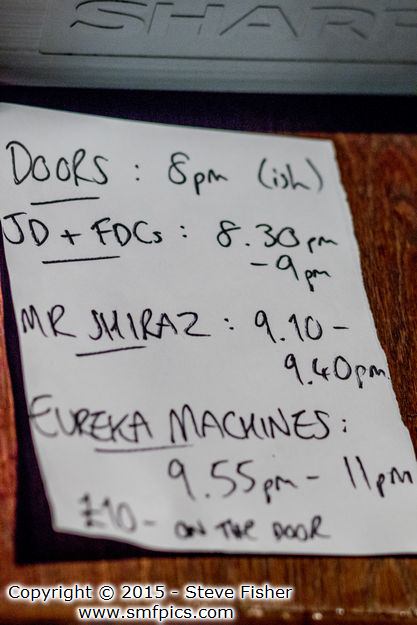 SHARP
DOORS : 8pm (ish)
JD + FDCs : 8.30pm
- 9pm
MR SHIRAZ : 9.10 -
9.40pm
EUREKA MACHINES :
9.55pm - 11pm
£10 - ON THE DOOR
Copyright © 2015 - Steve Fisher
www.smfpics.com